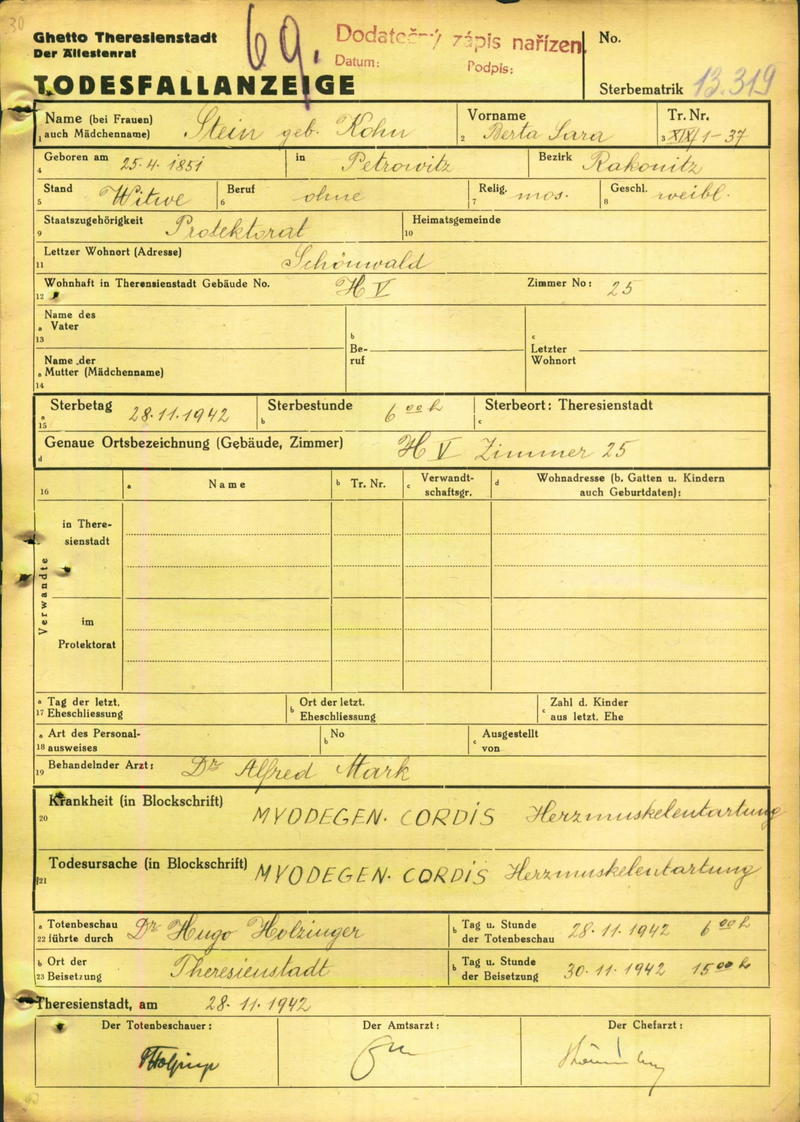 30
Ghetto Theresienstadt
Der Ältestenrat
TODESFALLANZEIGE
69.
Dodatečný zápis nařízen
Datum: Podpis:
No.
Sterbematrik 13.319
Name (bei Frauen) Stein geb. Kohn Vorname Berta Sara Tr. Nr.
1 auch Mädchenname) 2 3 XIX/1-37
Geboren am 25.4.1851 in Petrowitz Bezirk Rakonitz
4
Stand Witwe Beruf ohne Relig. mos. Geschl. weibl.
5 6 7 8
Staatszugehörigkeit Protektorat Heimatsgemeinde
9 10
Lettzer Wohnort (Adresse) Schönwald
11
Wohnhaft in Therensienstadt Gebäude No. H V Zimmer No: 25
12
Name des
a Vater
13
b
Be-
ruf
c
Letzter
Wohnort
Name der
a Mutter (Mädchenname)
14
a Sterbetag 28.11.1942 Sterbestunde 6 00 h Sterbeort: Theresienstadt
15 b c
Genaue Ortsbezeichnung (Gebäude, Zimmer) H V Zimmer 25
d
16 a Name b Tr. Nr. c Verwandt-
schaftsgr. d Wohnadresse (b. Gatten u. Kindern
auch Geburtdaten):
Verwandte
in There-
sienstadt
im
Protektorat
a Tag der letzt. b Ort der letzt. c Zahl d. Kinder
17 Eheschliessung Eheschliessung aus letzt. Ehe
a Art des Personal- b No c Ausgestellt
18 ausweises von
19 Behandelnder Arzt: Dr Alfred Mark
Krankheit (in Blockschrift) MYODEGEN. CORDIS Herzmuskelentartung
20
Todesursache (in Blockschrift) MYODEGEN. CORDIS Herzmuskelentartung
21
a Totenbeschau Dr Hugo Holzinger b Tag u. Stunde 28.11.1942 6 00 h
22 führte durch der Totenbeschau
b Ort der Theresienstadt b Tag u. Stunde 30.11.1942 15 00 h
23 Beisetzung der Beisetzung
Theresienstadt, am 28.11.1942
Der Totenbeschauer: Der Amtsarzt: Der Chefarzt: